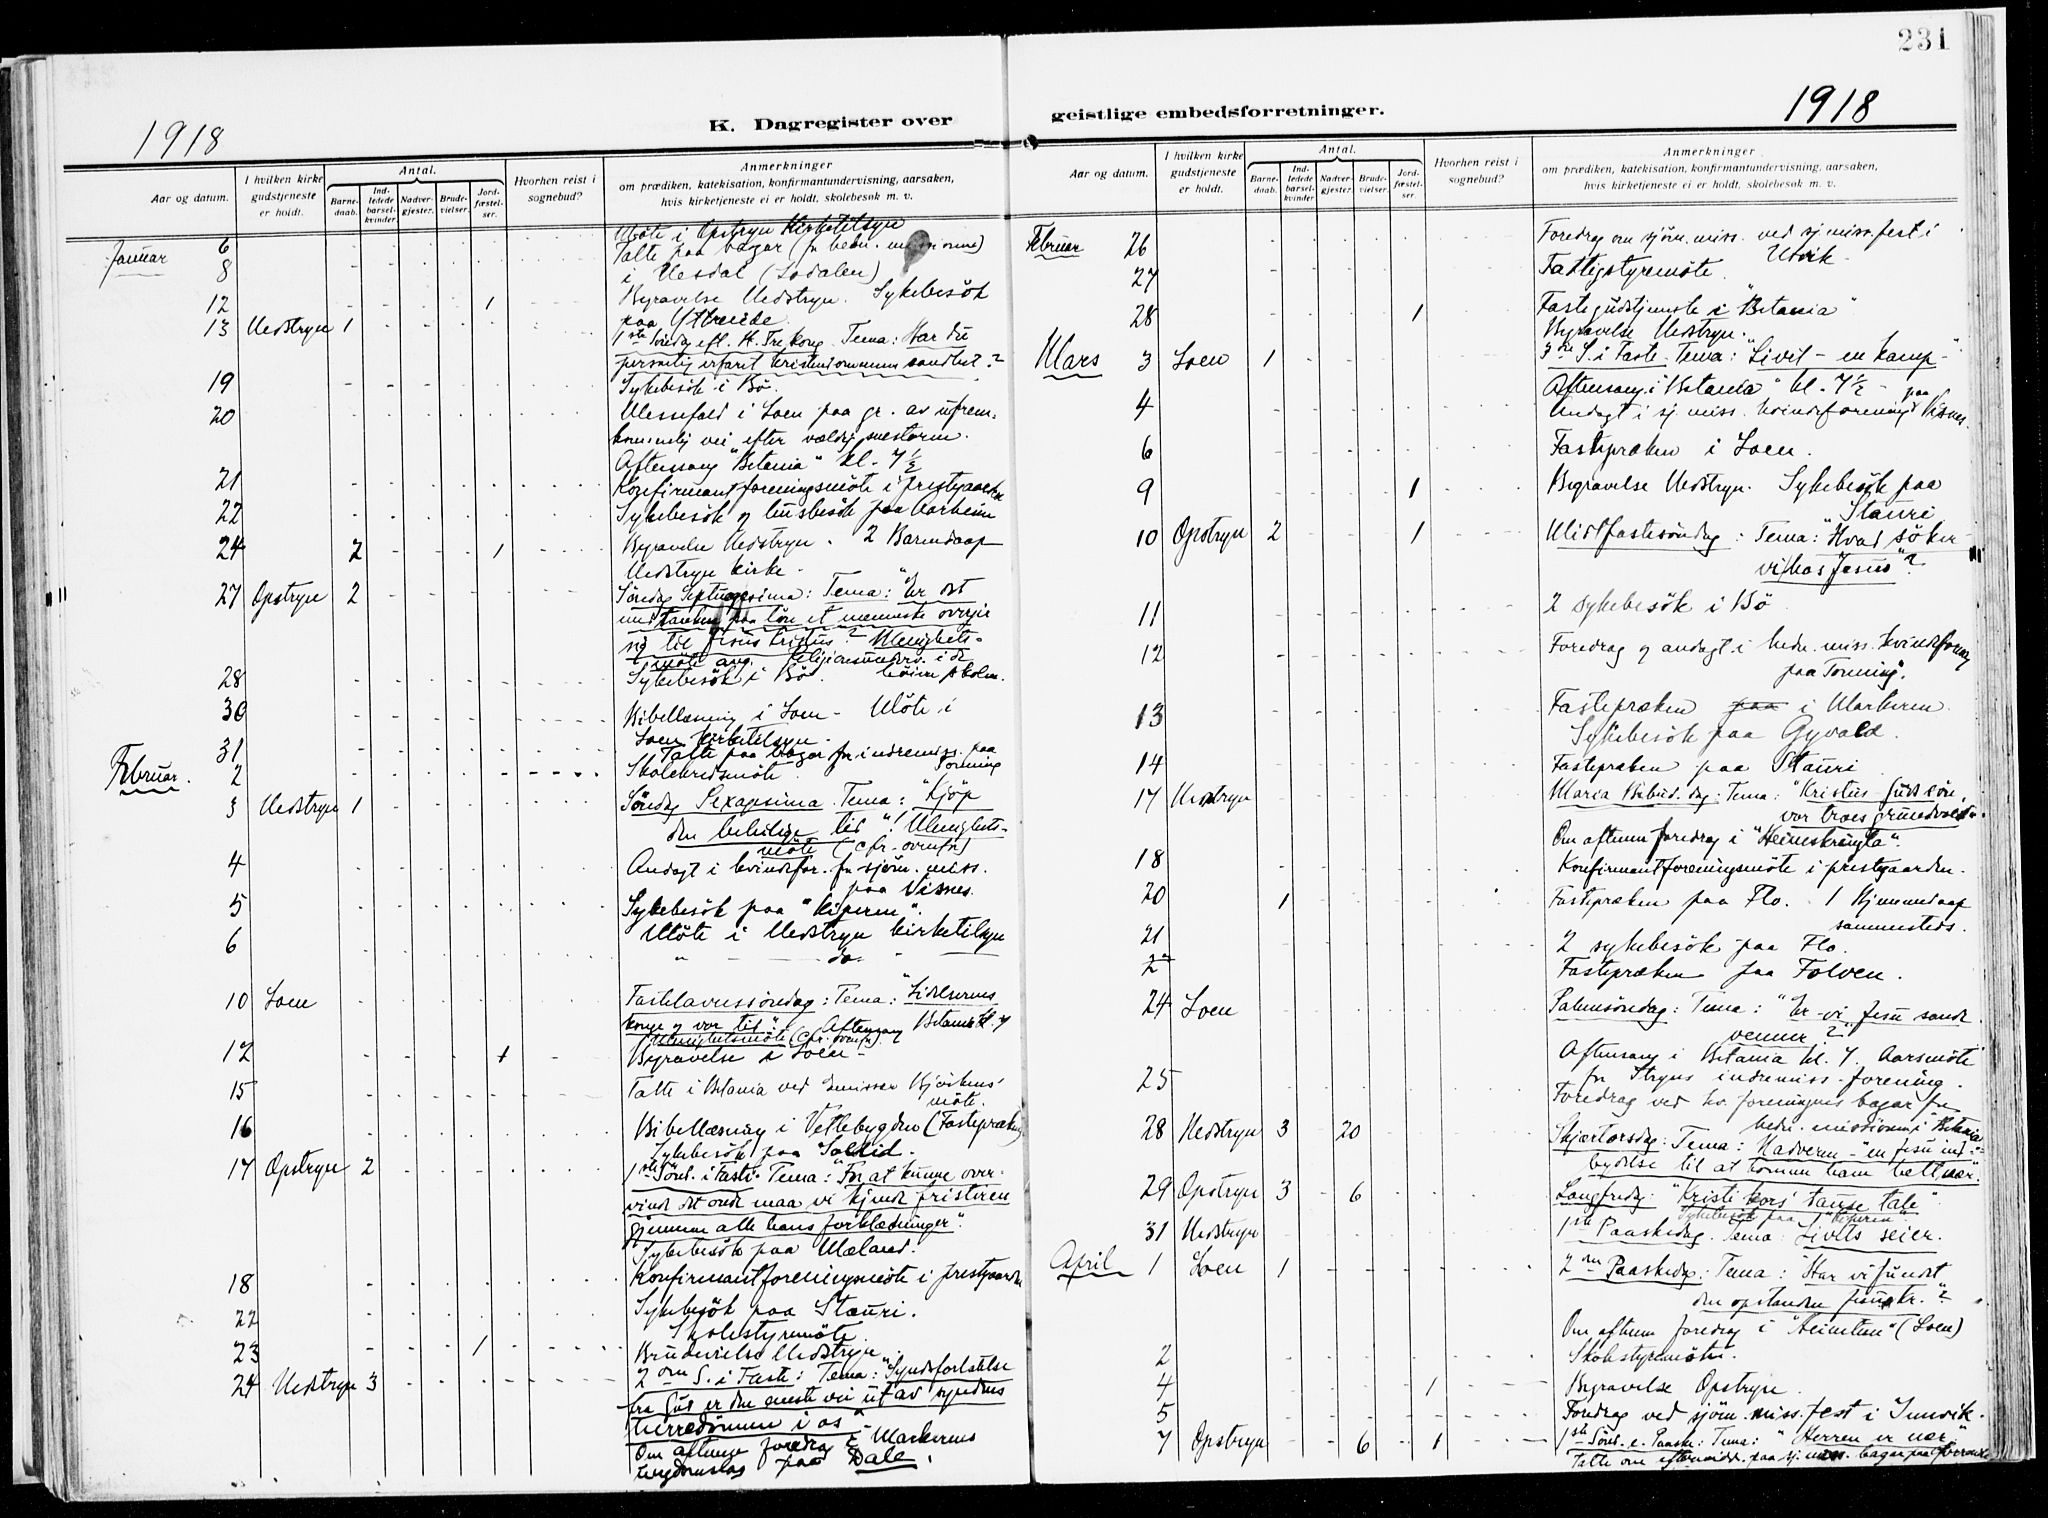 231
1918
K. Dagregister over
Aar og datum.
I hvilken kirke gudstjeneste er holdt.
Antal.
Barnedaab.
Indledede barselkvinder
Nadvergjester.
Brudevielser.
Jordfæstelser.
Hvorhen reist i sognebud?
Anmerkninger
om prædiken, katekisation, konfirmantundervisning, aarsaken,
hvis kirketjeneste ei er holdt, skolebesøk m. v.
Januar 6 Møte i Opstryn Kirketilsyn
8 Talte paa bazar (fr hedn. missionne)
i Nesdal (Lodalen)
12 1 Begravelse Nedstryn. Sykebesök
paa Ytreeide
13 Nedstryn 1 1ste Søndag eft. H. Tre Kong. Tema: Har du
personlig erfaret kristendommens sandhet?
19 Sykebesök i Bö.
20 Messefald i Loen paa gr. av ufrem-
kommelig vei efter vældig snestorm.
Aftensang "Betania" kl. 7½
21 Konfirmantforeningsmöte i prestgaarden
22 Sykebesök og husbesök paa Aarheim
24 2 1 Begravelse Nedstryn. 2 Barnedaap
Nedstryn kirke.
27 Opstryn 2 Søndag Septuagesima: Tema: "Er det
med tanken paa løn et menneske overgir
sig til Jesus Kristus"? Menighets-
möte ang. Religionsunderv. i de
28 Sykebesök i Bö. høiere skoler.
30 Bibellæsning i Loen - Möte i
Loen Kirketilsyn.
31 Talte paa bazar for indremiss. paa
Tonning
Februar. 2 Skolekredsmöte
3 Nedstryn 1 Söndag Sexagesima. Tema: "Kjöp
den beleilige tid"! Menighets-
möte (cfr. ovenfor)
4 Andagt i kvindefor. for sjöm. miss.
paa Visnes.
5 Sykebesök paa
6 Möte i Nedstryn kirketilsyn
" - do - "
10 Loen Fastelavnssöndag: Tema: "Lidelsernes
konge og vor tid". Aftensang Betania kl. 7
Menighetsmöte (cfr. ovenfor).
12 1 Begravelse i Loen
15 Talte i Betania ved Emissær
möte.
16 Bibellæsning i Vetlebygden (Fastepræken)
Sykebesök paa
17 Opstryn 2 1ste Sönd. i Faste. Tema: "For at kunne over-
vinde det onde maa vi kjende fristeren
gjennem alle hans forklædninger".
Sykebesök paa Mæland.
18 Konfirmantforeningsmöte i prestgaarden
22 Sykebesök paa Stauri.
Skolestyremöte.
23 1 Brudevielse Nedstryn
24 Nedstryn 3 2den S. i Faste: Tema: "Syndsforlatelse
fra Gud er den eneste vei ut av syndens
herredömme i os"
Om aftenen foredrag i Markernes
ungdomslag paa Dale.
geistlige embedsforretninger.
1918
Aar og datum.
I hvilken kirke gudstjeneste er holdt.
Antal.
Barnedaab.
Indledede barselkvinder
Nadvergjester.
Brudevielser.
Jordfæstelser.
Hvorhen reist i sognebud?
Anmerkninger
om prædiken, katekisation, konfirmantundervisning, aarsaken,
hvis kirketjeneste ei er holdt, skolebesøk m. v.
Februar 26 Foredrag om sjöm. miss. ved sj. miss. fest i
Utvik
27 Fattigstyremöte.
28 1 Fastegudstjeneste i "Betania"
Begravelse Nedstryn.
Mars 3 Loen 1 3die S. i Faste. Tema: "Livet - en kamp"
Aftensang i "Betania" kl. 7½
4 Andagt i sj. miss. kvindeforening paa Visnes.
6 Fastepræken i Loen.
9 1 Begravelse Nedstryn. Sykebesök paa
Stauri
10 Opstryn 2 1 Midtfastesöndag: Tema: "Hvad söker
vi hos Jesus"?
11 2 sykebesök i Bö
12 Foredrag og andagt i hedn. miss. kvindeforening
paa Tonning.
13 Fastepræken paa i Markerne.
Sykebesök paa
14 Fastepræken paa Stauri
17 Nedstryn Maria Bebud. dag: Tema: "Kristus Guds sön,
vor troes grundvold".
Om aftenen foredrag i "Heimskringla".
18 Konfirmantforeningsmöte i prestgaarden.
20 1 Fastepræken paa Flo. 1 Hjemmedaap
sammesteds.
21 2 sykebesök paa Flo.
Fastepræken paa Folven.
24 Loen Palmesöndag: Tema: "Er vi Jesu sande
venner?"
Aftensang i Betania kl. 7. Aarsmöte
for Stryns indremiss. forening.
25 Foredrag ved kv. foreningens bazar for
hedn. missionen i Betania
28 Nedstryn 3 20 Skjærtorsdag: Tema: "Nadveren - en Jesu ind-
bydelse til at komme ham helt nær".
29 Opstryn 3 6 Langfredag. "Kristi kors' tause tale"
Sykebesök paa
31 Nedstryn 1ste Paaskedag. Tema: Livets seier.
April 1 Loen 1 2den Paaskedag: Tema: "Har vi fundet
den opstandne Jesus Kr."?
Om aftenen foredrag i "Heimtun" (Loen)
2 Skolestyremöte.
4 1 Begravelse Opstryn.
5 Foredrag ved sjöm. miss. fest i Innvik.
7 Opstryn 6 1 1ste Sönd. e. Paaske: Tema: "Herren er nær"
Talte om eftermidd. paa sj. miss. bazar paa